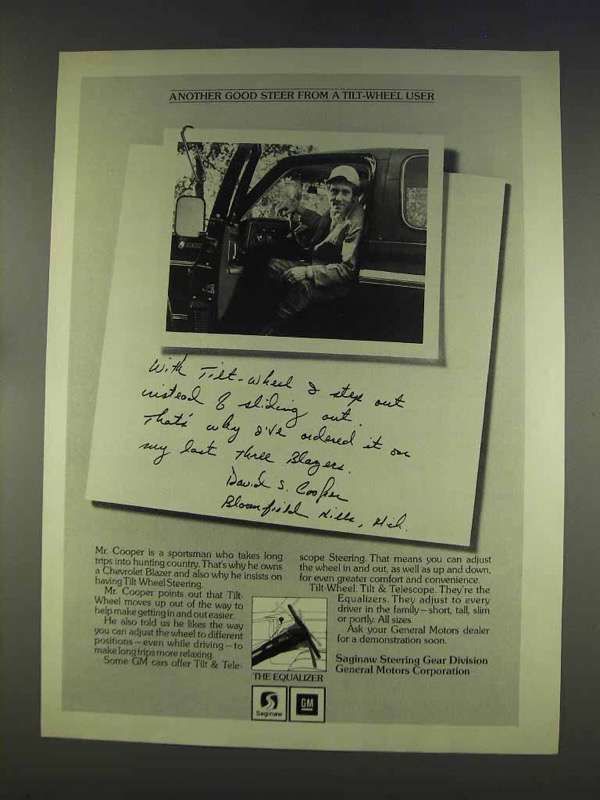 ANOTHER GOOD STEER FROM A TILT-WHEEL USER
With Tilt-wheel I step out
instead of sliding out.
That's why I've ordered it on
my last three Blazers.
David S. Cooper
Bloomfield Hills, Mich.
Mr. Cooper is a sportsman who takes long
trips into hunting country. That's why he owns
a Chevrolet Blazer and also why he insists on
having Tilt Wheel Steering.
Mr. Cooper points out that Tilt-
Wheel moves up out of the way to
help make getting in and out easier.
He also told us he likes the way
you can adjust the wheel to different
positions—even while driving—to
make long trips more relaxing.
Some GM cars offer Tilt & Tele-
scope Steering. That means you can adjust
the wheel in and out, as well as up and down,
for even greater comfort and convenience.
Tilt-Wheel. Tilt & Telescope. They're the
Equalizers. They adjust to every
driver in the family—short, tall, slim
or portly. All sizes
Ask your General Motors dealer
for a demonstration soon.
Saginaw Steering Gear Division
General Motors Corporation
THE EQUALIZER
Saginaw
GM